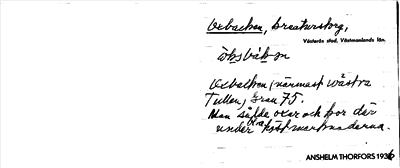 Oxbacken, kreaturstorg,
Västerås stad, Västmanlands län.
Oxbacken (närmast västra
Tullen, kran 75.
Man sålde oxar och kor där
under höstmarknaderna.
ANSHELM THORFORS 1936